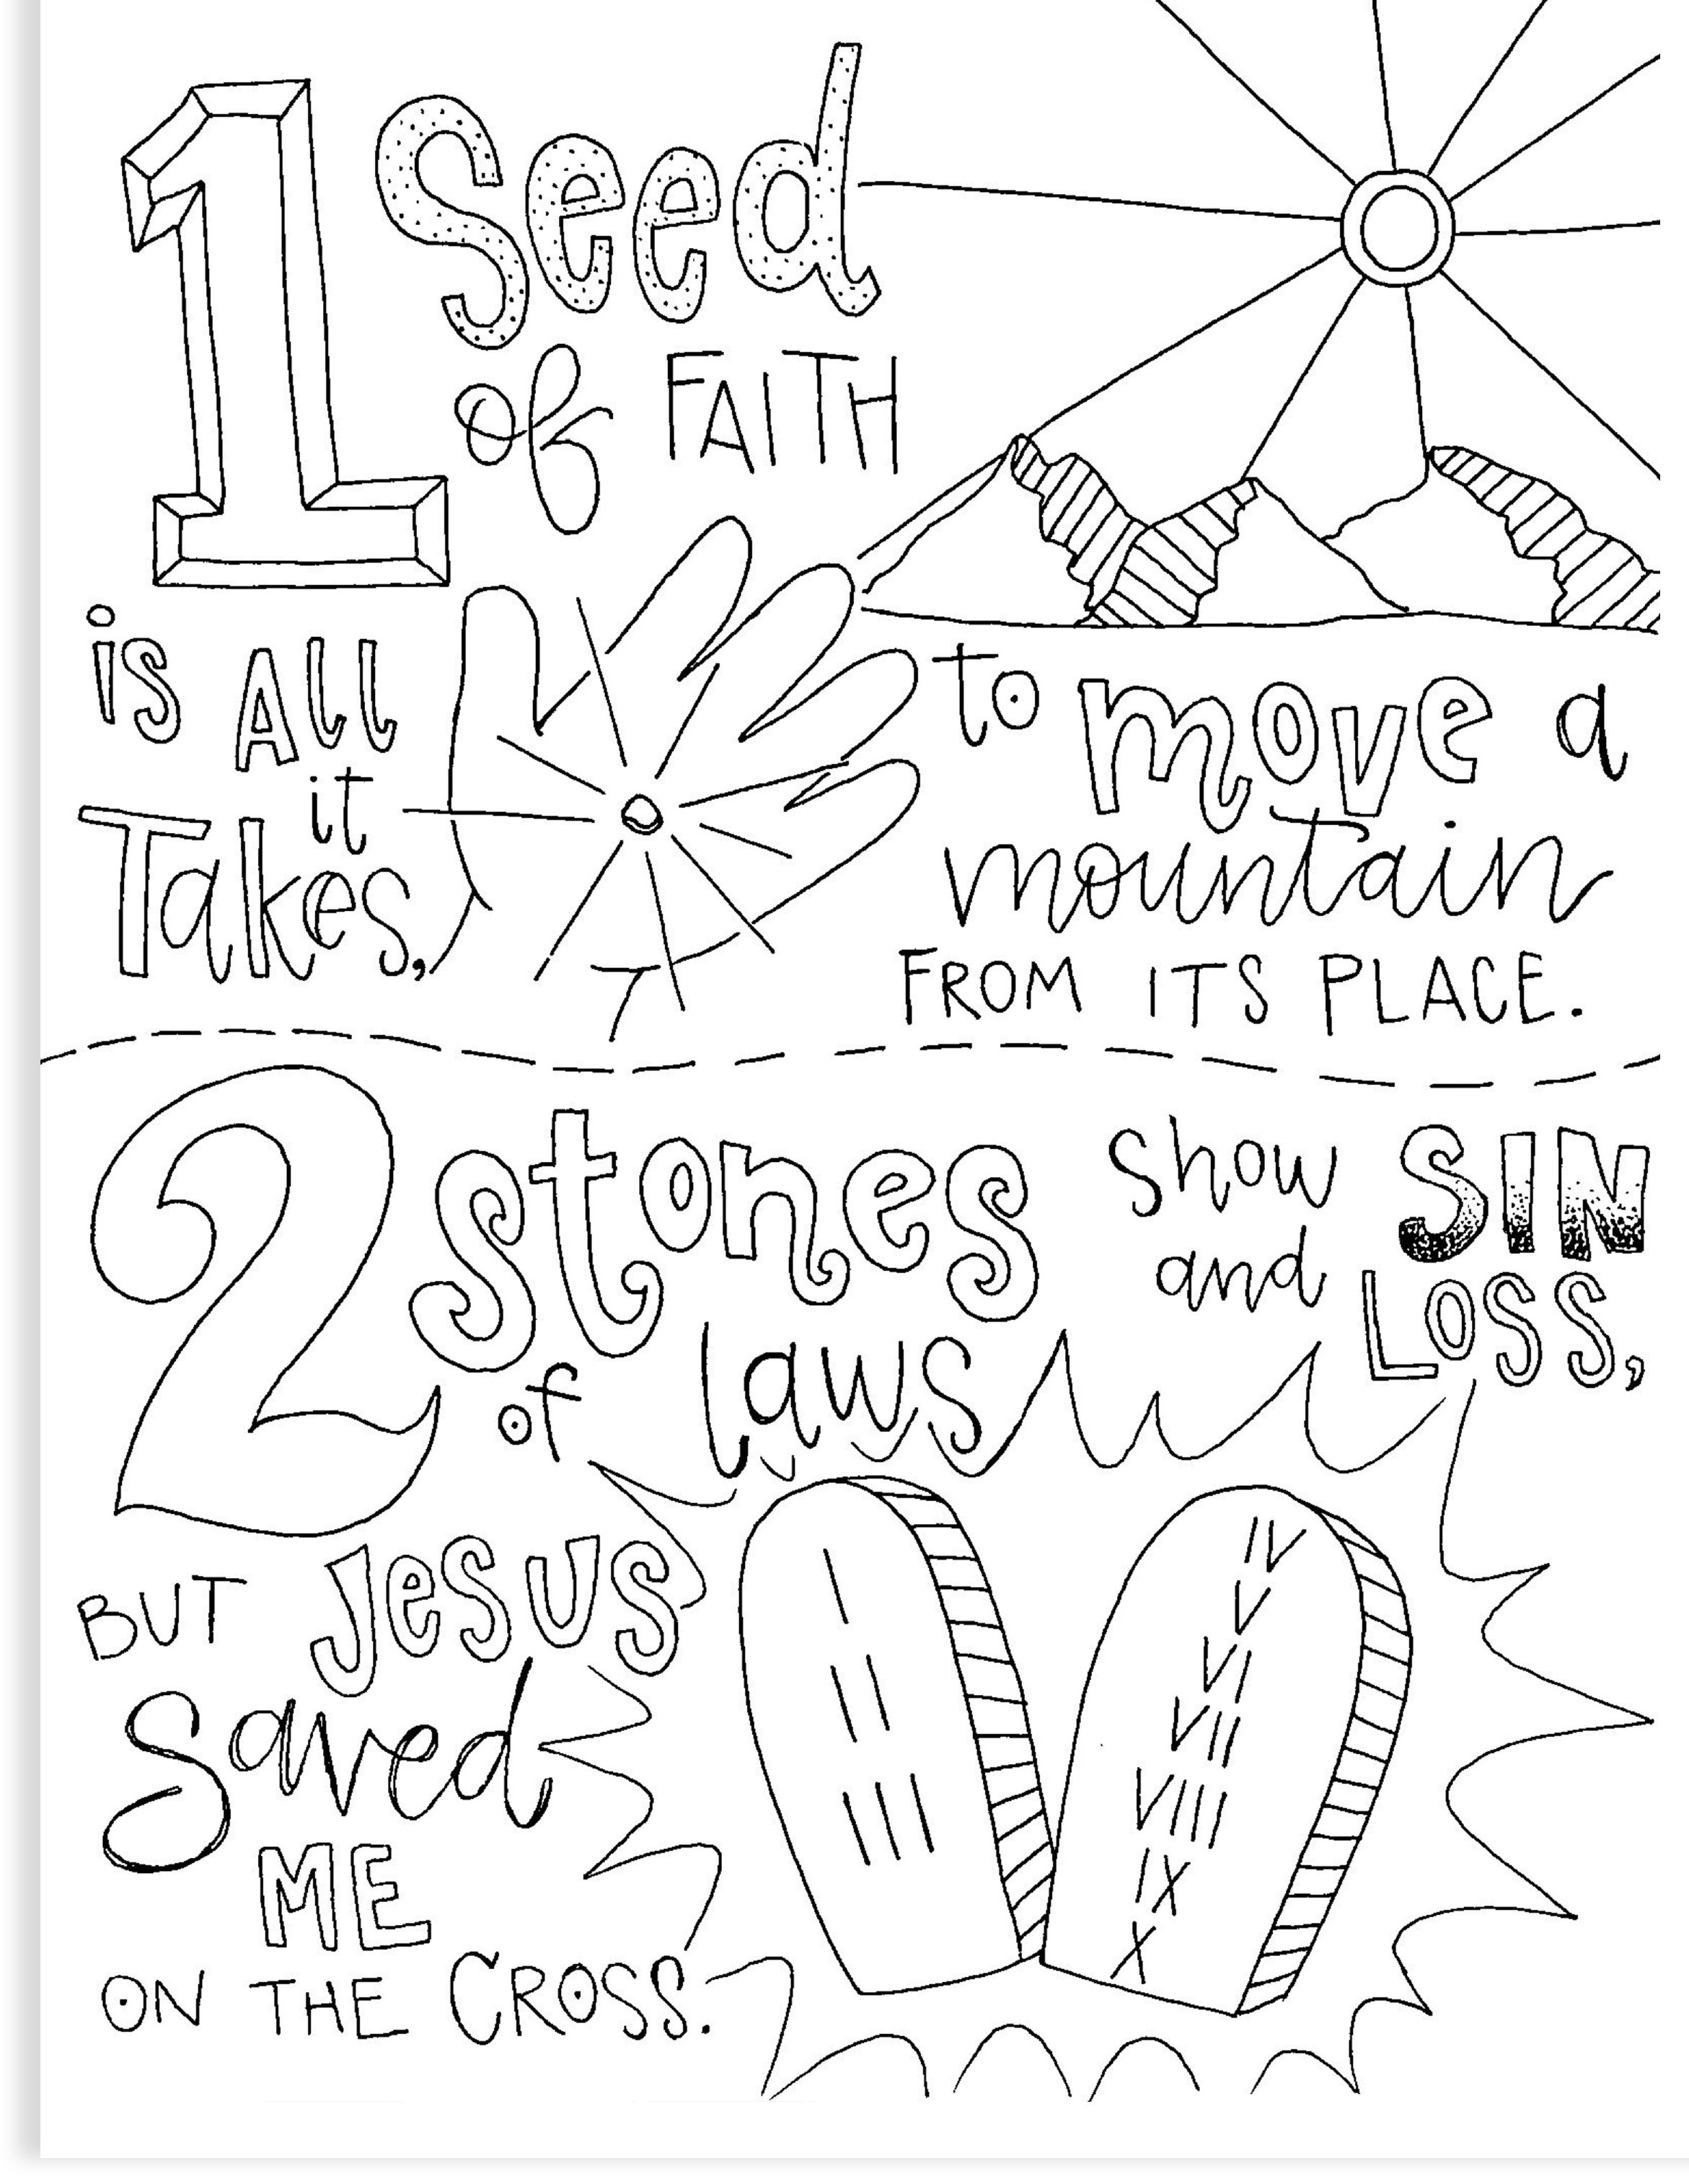 1 Seed
of FAITH
is All
it
Takes,
to move a
mountain
FROM ITS PLACE.
2 stones
of laws
show SIN
and LOSS,
BUT JESUS
Saved
ME
ON THE CROSS.
I
II
III
IV
V
VI
VII
VIII
IX
X